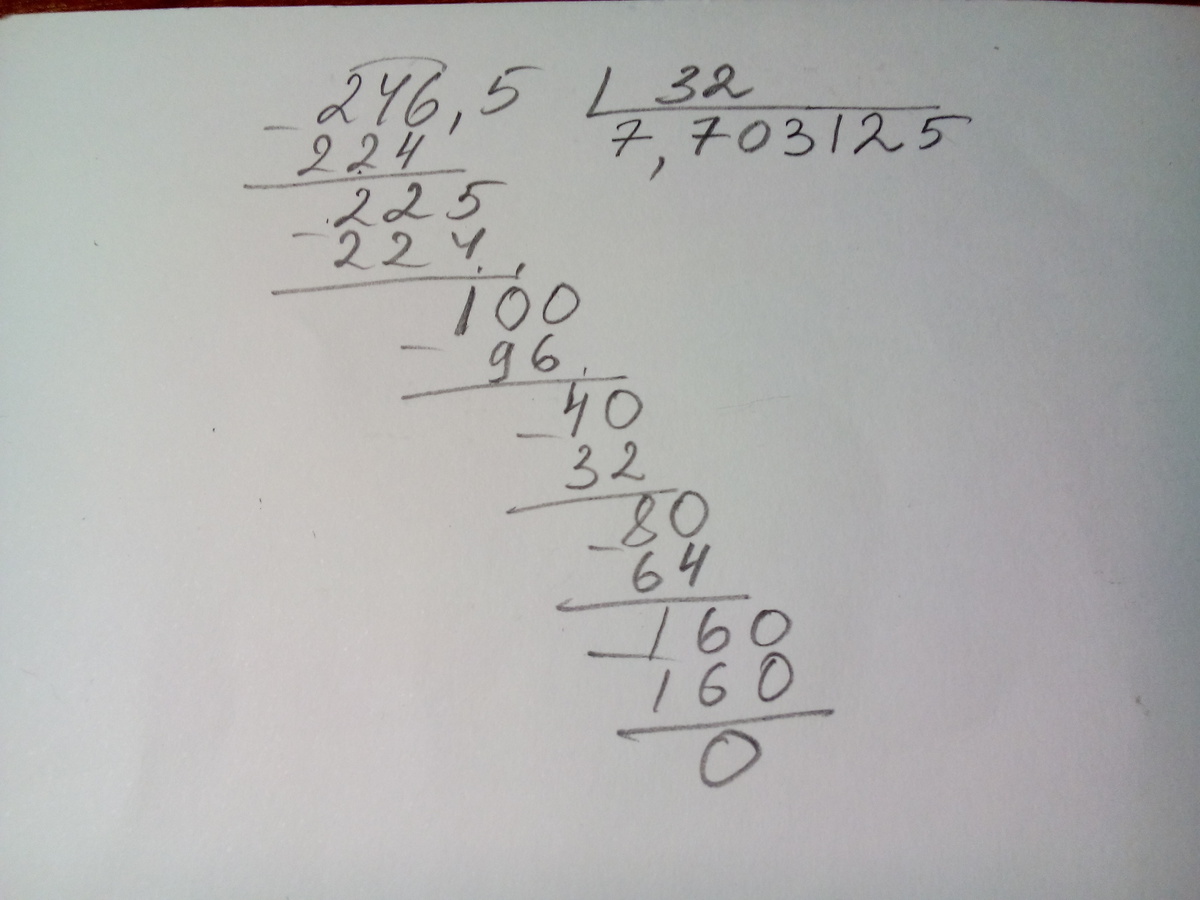 246,5 32
- 224 7,703125
- 225
224
100
- 96
- 40
32
- 80
64
- 160
160
0